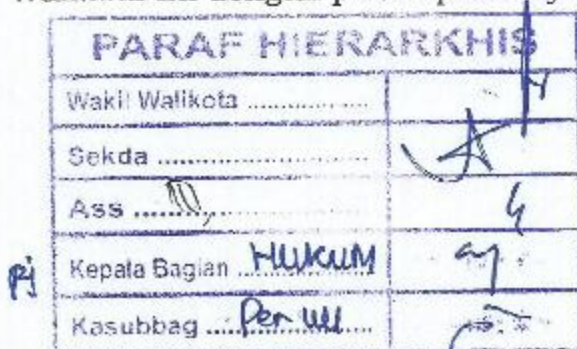 PARAF HIERARKHIS
Wakil Walikota ..................
Sekda ..............................
Ass ........,.......................
pj Kepala Bagian HUKUM
Kasubbag ....Per UU.......